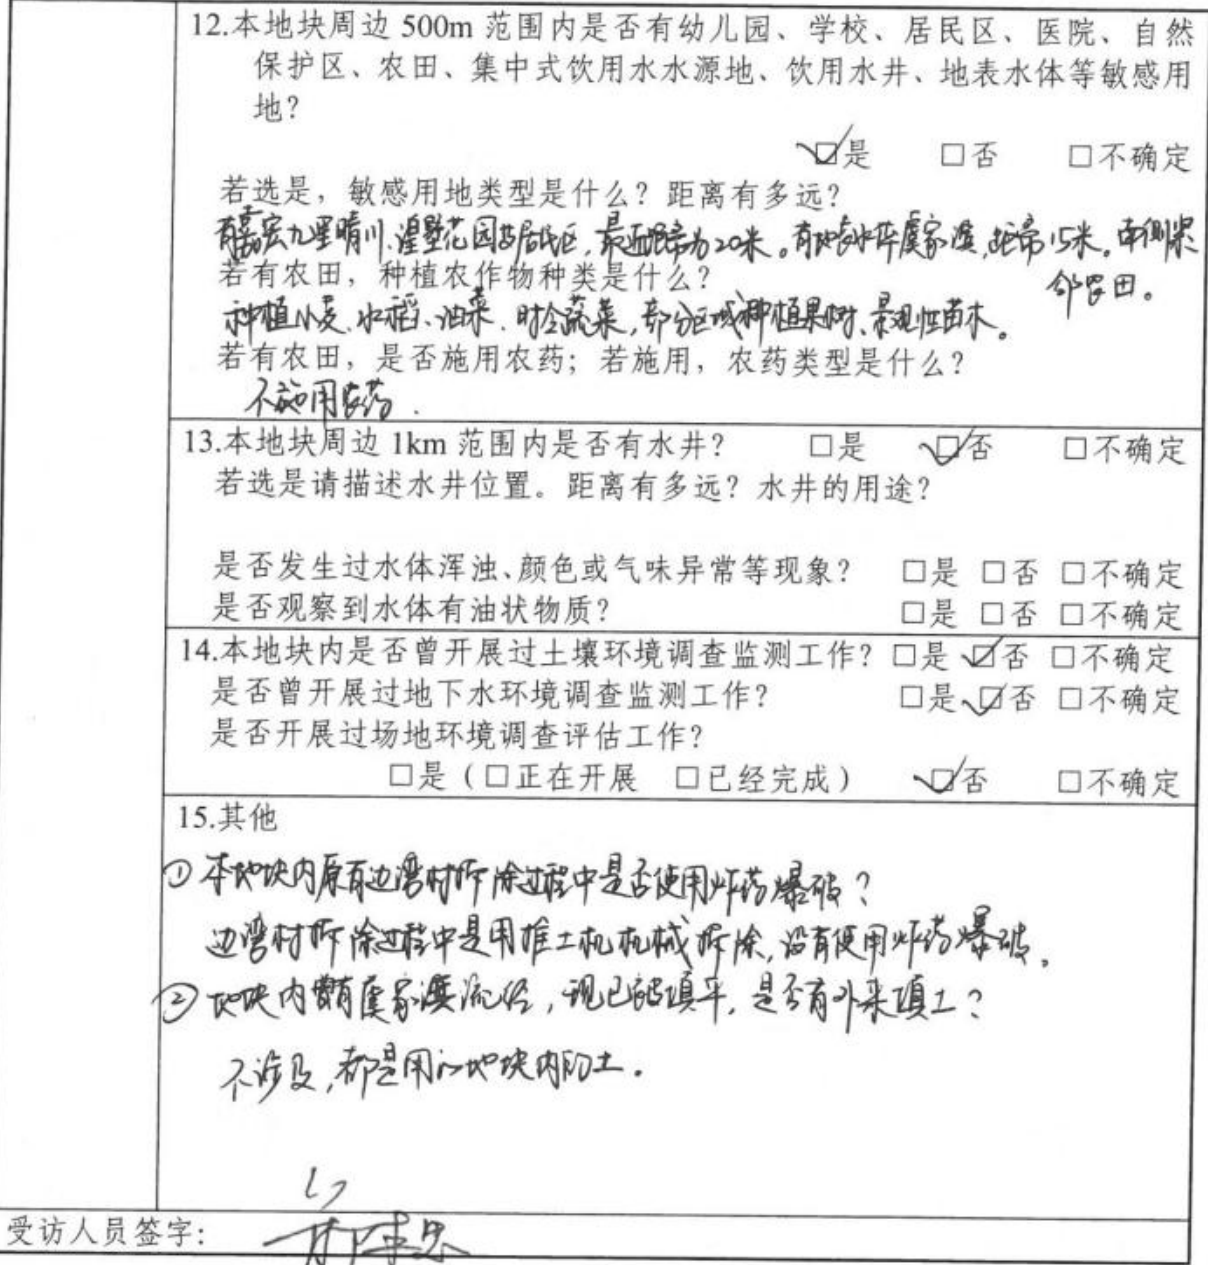 12.本地块周边 500m 范围内是否有幼儿园、学校、居民区、医院、自然
保护区、农田、集中式饮用水水源地、饮用水井、地表水体等敏感用
地?
☑是 □否 □不确定
若选是，敏感用地类型是什么？距离有多远？
有嘉宏九里晴川、湟里花园等居民区，最近距离为20米。有地表水体虞家浜，距离15米。南侧紧
邻农田。
若有农田，种植农作物种类是什么？
种植小麦、水稻、油菜、时令蔬菜，部分区域种植果树、景观性苗木。
若有农田，是否施用农药；若施用，农药类型是什么？
不施用农药.
13.本地块周边 1km 范围内是否有水井? □是 ☑否 □不确定
若选是请描述水井位置。距离有多远？水井的用途？
是否发生过水体浑浊、颜色或气味异常等现象? □是 □否 □不确定
是否观察到水体有油状物质? □是 □否 □不确定
14.本地块内是否曾开展过土壤环境调查监测工作? □是 ☑否 □不确定
是否曾开展过地下水环境调查监测工作? □是 ☑否 □不确定
是否开展过场地环境调查评估工作?
□是（□正在开展 □已经完成） ☑否 □不确定
15.其他
① 本地块内原有边湾村拆除过程中是否使用炸药爆破？
边湾村拆除过程中是用推土机机械拆除，没有使用炸药爆破。
② 地块内曾有虞家浜流经，现已被填平，是否有外来填土？
不涉及，都是用的地块内的土。
受访人员签字: